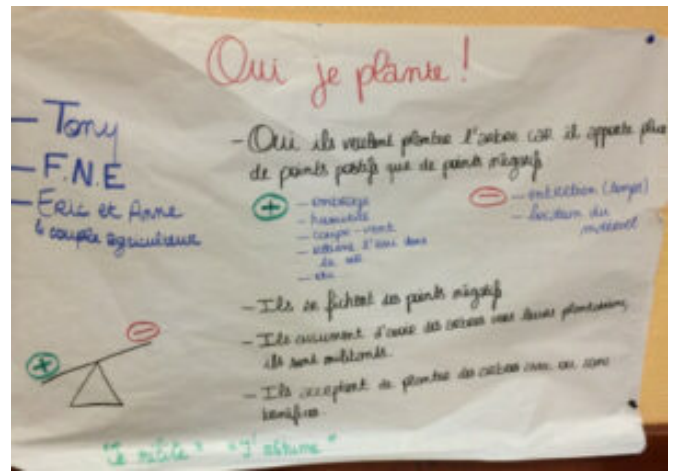 Oui je plante !
— Tony
— F.N.E
— Eric et Anne
↳ couple agriculteur
— Oui ils veulent planter l'arbre car il apporte plus
de points positifs que de points négatifs
+
— ombrage
— humidité
— coupe-vent
— l'eau dans
le sol
— etc
−
— entretien (temps)
— location du
matériel
— Ils se fichent des points négatifs
— Ils assument d'avoir des arbres vers leurs plantations,
ils sont militants.
— Ils acceptent de planter des arbres avec ou sans
bénéfices
+
−
"Je milite" "J'assume"